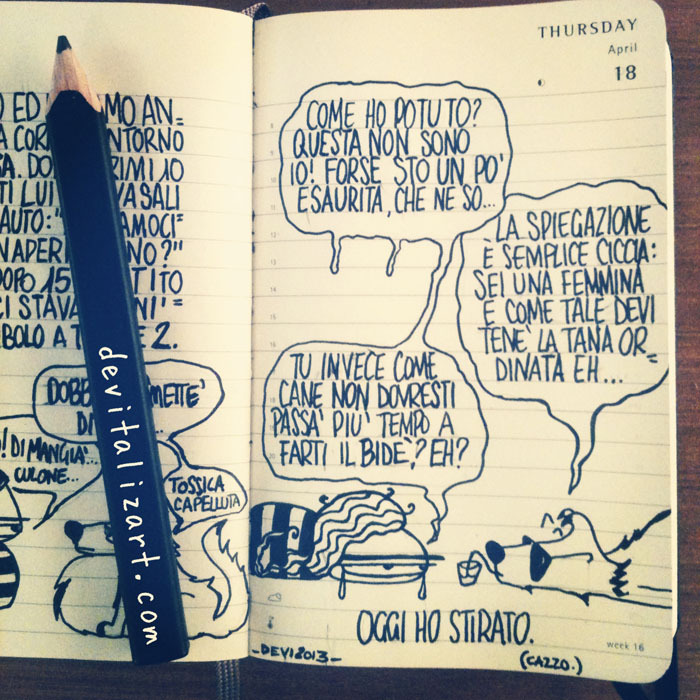 O ED MO AN=
A COR NTORNO
SA. DO RIMI IO
TI LUI VASALI
AUTO: AMOCI=
N APERI NO?"
DOPO 15 TITO
CI STAVA NI'=
BOLO A T E 2.
DOBB METTE'
DI
O! DI MANGIA'...
CULONE...
TOSSICA
CAPELLUTA
devitalizart.com
THURSDAY
April
18
COME HO POTUTO?
QUESTA NON SONO
IO! FORSE STO UN PO'
ESAURITA, CHE NE SO...
LA SPIEGAZIONE
È SEMPLICE CICCIA:
SEI UNA FEMMINA
E COME TALE DEVI
TENE' LA TANA OR=
DINATA EH...
TU INVECE COME
CANE NON DOVRESTI
PASSA' PIU' TEMPO A
FARTI IL BIDÈ,? EH?
OGGI HO STIRATO.
(CAZZO.)
-DEVI2013-
week 16